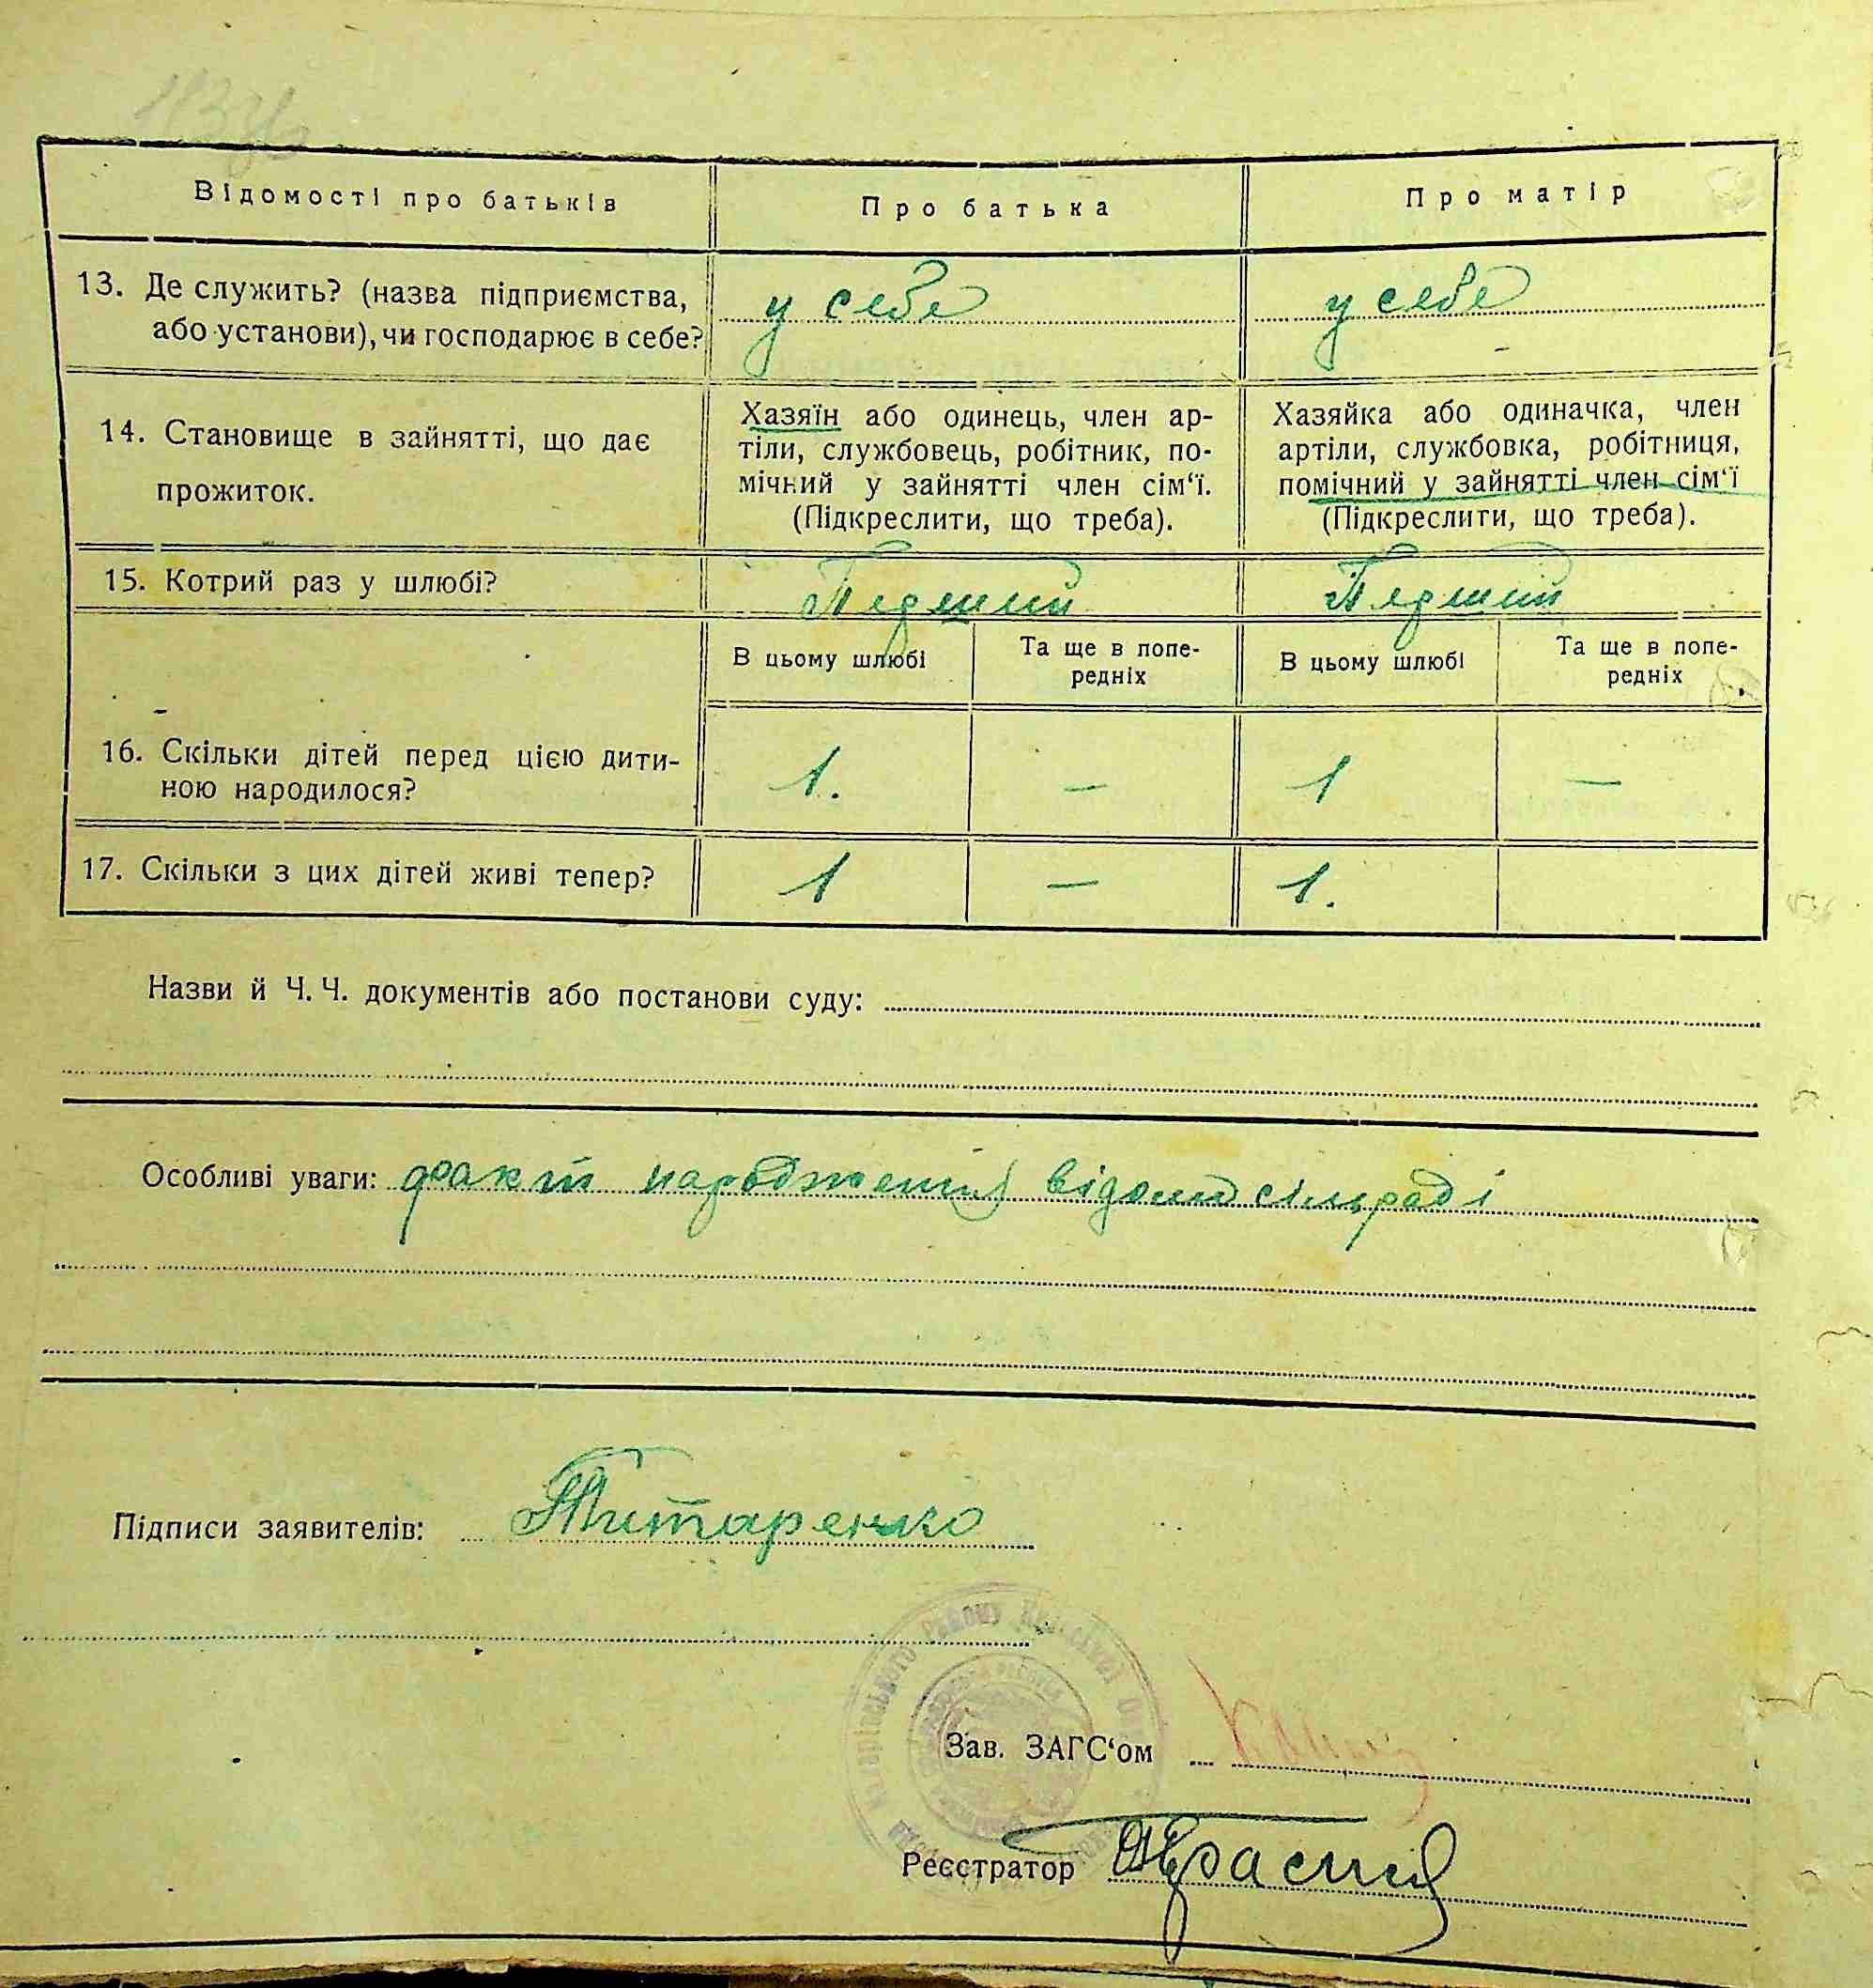 Відомості про батьків
Про батька
Про матір
13. Де служить? (назва підприємства,
або установи), чи господарює в себе?
у себе
у себе
14. Становище в зайнятті, що дає
прожиток.
Хазяїн або одинець, член ар-
тіли, службовець, робітник, по-
мічний у зайнятті член сім‘ї.
(Підкреслити, що треба).
Хазяйка або одиначка, член
артіли, службовка, робітниця,
помічний у зайнятті член сім‘ї
(Підкреслити, що треба).
15. Котрий раз у шлюбі?
Перший
Перший
В цьому шлюбі
Та ще в попе-
редніх
В цьому шлюбі
Та ще в попе-
редніх
16. Скільки дітей перед цією дити-
ною народилося?
1.
—
1
—
17. Скільки з цих дітей живі тепер?
1
—
1.
Назви й Ч. Ч. документів або постанови суду:
Особливі уваги: факт народження відом сільраді
Підписи заявителів: Титаренко
району
Зав. ЗАГС‘ом
Реєстратор